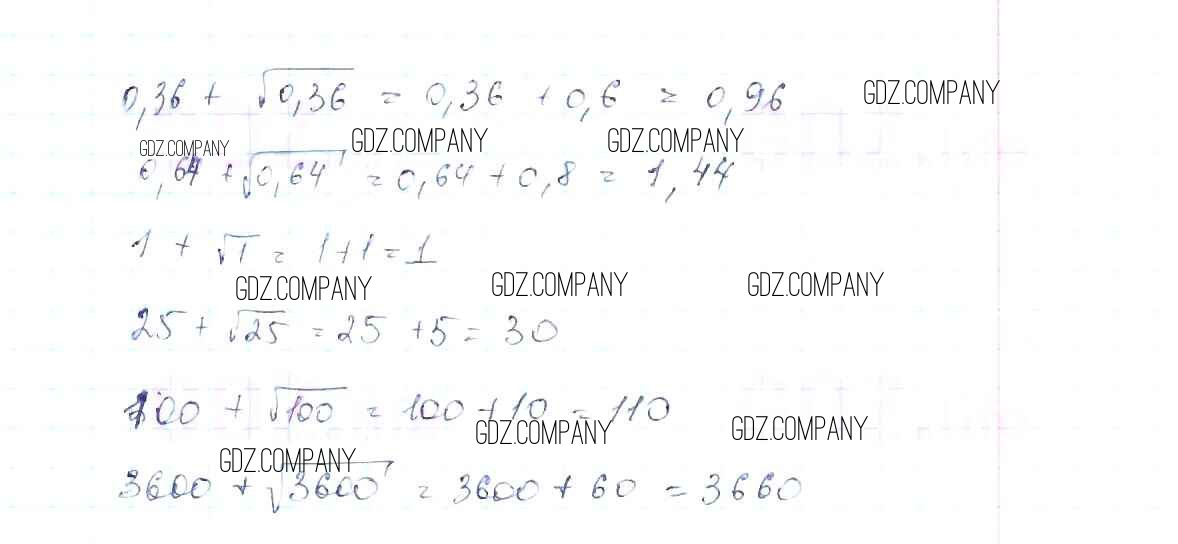 0,36 + √0,36 = 0,36 + 0,6 = 0,96 GDZ.COMPANY
GDZ.COMPANY GDZ.COMPANY GDZ.COMPANY
0,64 + √0,64 = 0,64 + 0,8 = 1,44
1 + √1 = 1 + 1 = 1
GDZ.COMPANY GDZ.COMPANY GDZ.COMPANY
25 + √25 = 25 + 5 = 30
100 + √100 = 100 + 10 = 110
GDZ.COMPANY GDZ.COMPANY GDZ.COMPANY
3600 + √3600 = 3600 + 60 = 3660